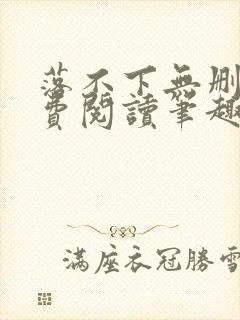 落不下無刪
費閱讀筆趣
滿座衣冠勝雪